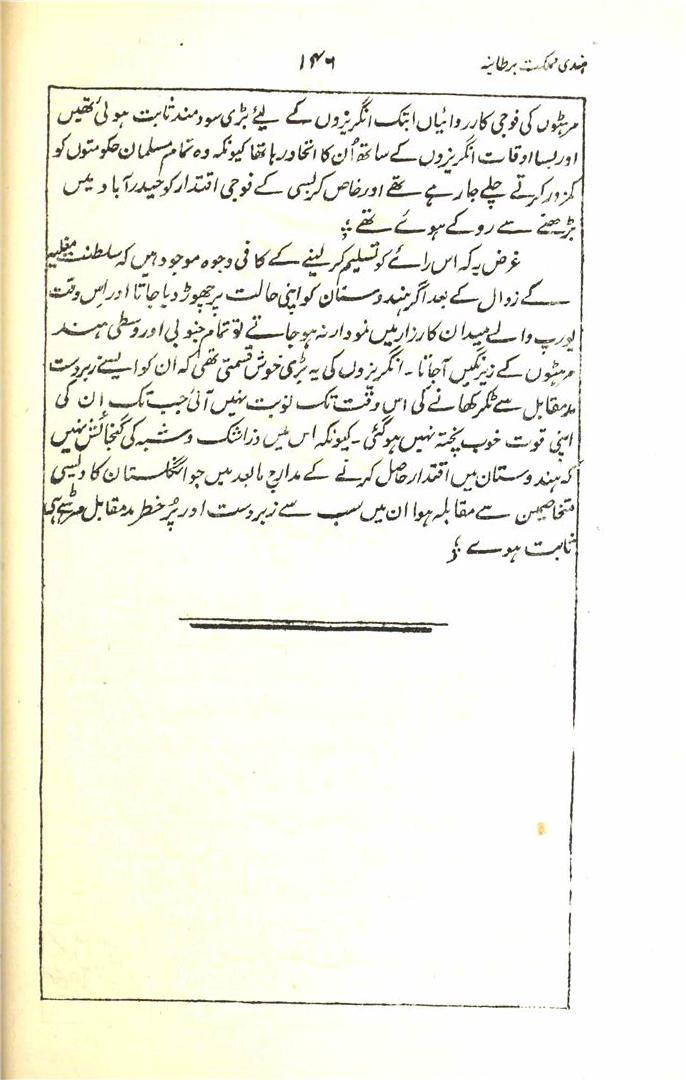 ہندی مملکت برطانیہ
۱۴۶
مرہٹوں کی فوجی کارروائیاں ابتک انگریزوں کے لیئے بڑی سودمند ثابت ہوئی تھیں
اور بسا اوقات انگریزوں کے ساتھ اُن کا اتحاد رہا تھا کیونکہ وہ تمام مسلمان حکومتوں کو
کمزور کرتے چلے جارہے تھے اور خاص کر بسی کے فوجی اقتدار کو حیدرآباد میں
بڑھنے سے روکے ہوئے تھے ؛
غرض یہ کہ اس رائے کو تسلیم کر لینے کے کافی وجوہ موجود ہیں کہ سلطنت مغلیہ
کے زوال کے بعد اگر ہندوستان کو اپنی حالت پر چھوڑ دیا جاتا اور اس وقت
یورپ والے میدان کارزار میں نمودار نہ ہو جاتے تو تمام جنوبی اور وسطی ہند
مرہٹوں کے زیرنگیں آجاتا ۔ انگریزوں کی یہ بڑی خوش قسمتی تھی کہ ان کو ایسے زبردست
مد مقابل سے ٹکر کھانے کی اس وقت تک نوبت نہیں آئی جب تک اِن کی
اپنی قوت خوب پختہ نہیں ہوگئی ۔ کیونکہ اس میں ذرا شک و شبہ کی گنجائش نہیں
کہ ہندوستان میں اقتدار حاصل کرنے کے مدارج مابعد میں جو انگلستان کا دیسی
متخاصمین سے مقابلہ ہوا ان میں سب سے زبردست اور پُر خطر مد مقابل مرہٹے ہی
ثابت ہوے ؛